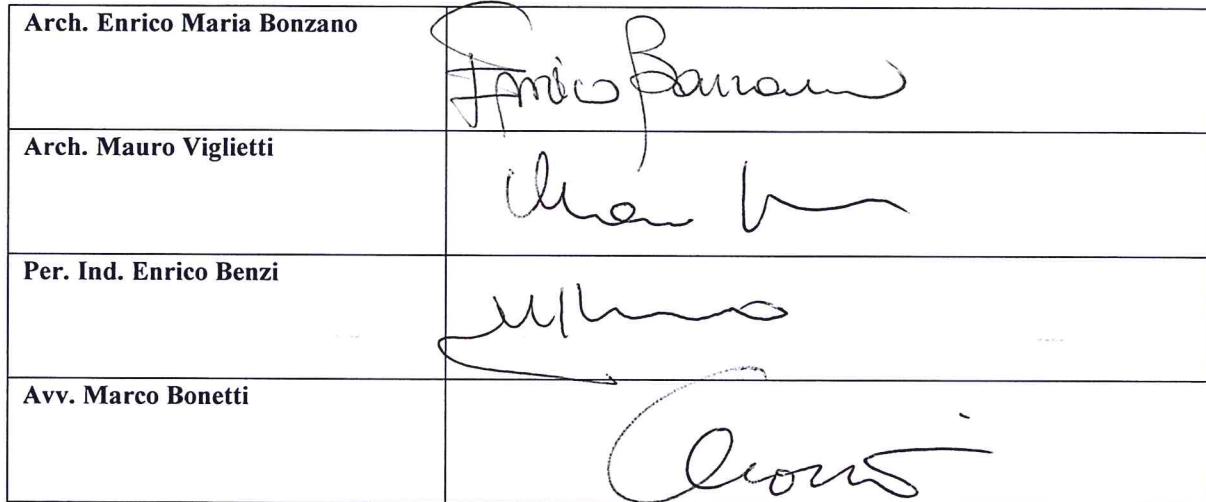 Arch. Enrico Maria Bonzano
Enrico Bonzano
Arch. Mauro Viglietti
Per. Ind. Enrico Benzi
Avv. Marco Bonetti